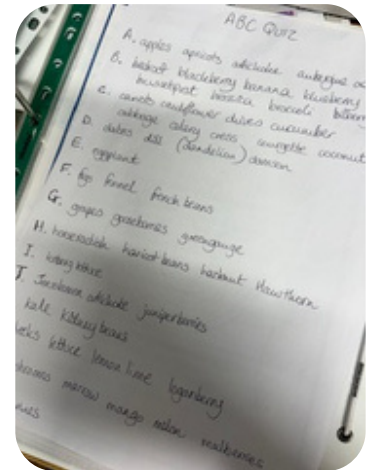 ABC QUIZ
A. apples apricots artichoke aubergine
B. beetroot blackberry banana blueberry
broccoli
C. carrots cauliflower chives cucumber
cabbage celery cress courgette coconut
D. dates dill (dandelion) damson
E. eggplant
F. figs fennel french beans
G. grapes gooseberries greengage
H. horseradish haricot beans hazelnut Hawthorn
I. iceberg lettuce
J. Jerusalem artichoke juniper berries
kale kidney beans
leeks lettuce lemon lime loganberry
marrow mango melon mulberries